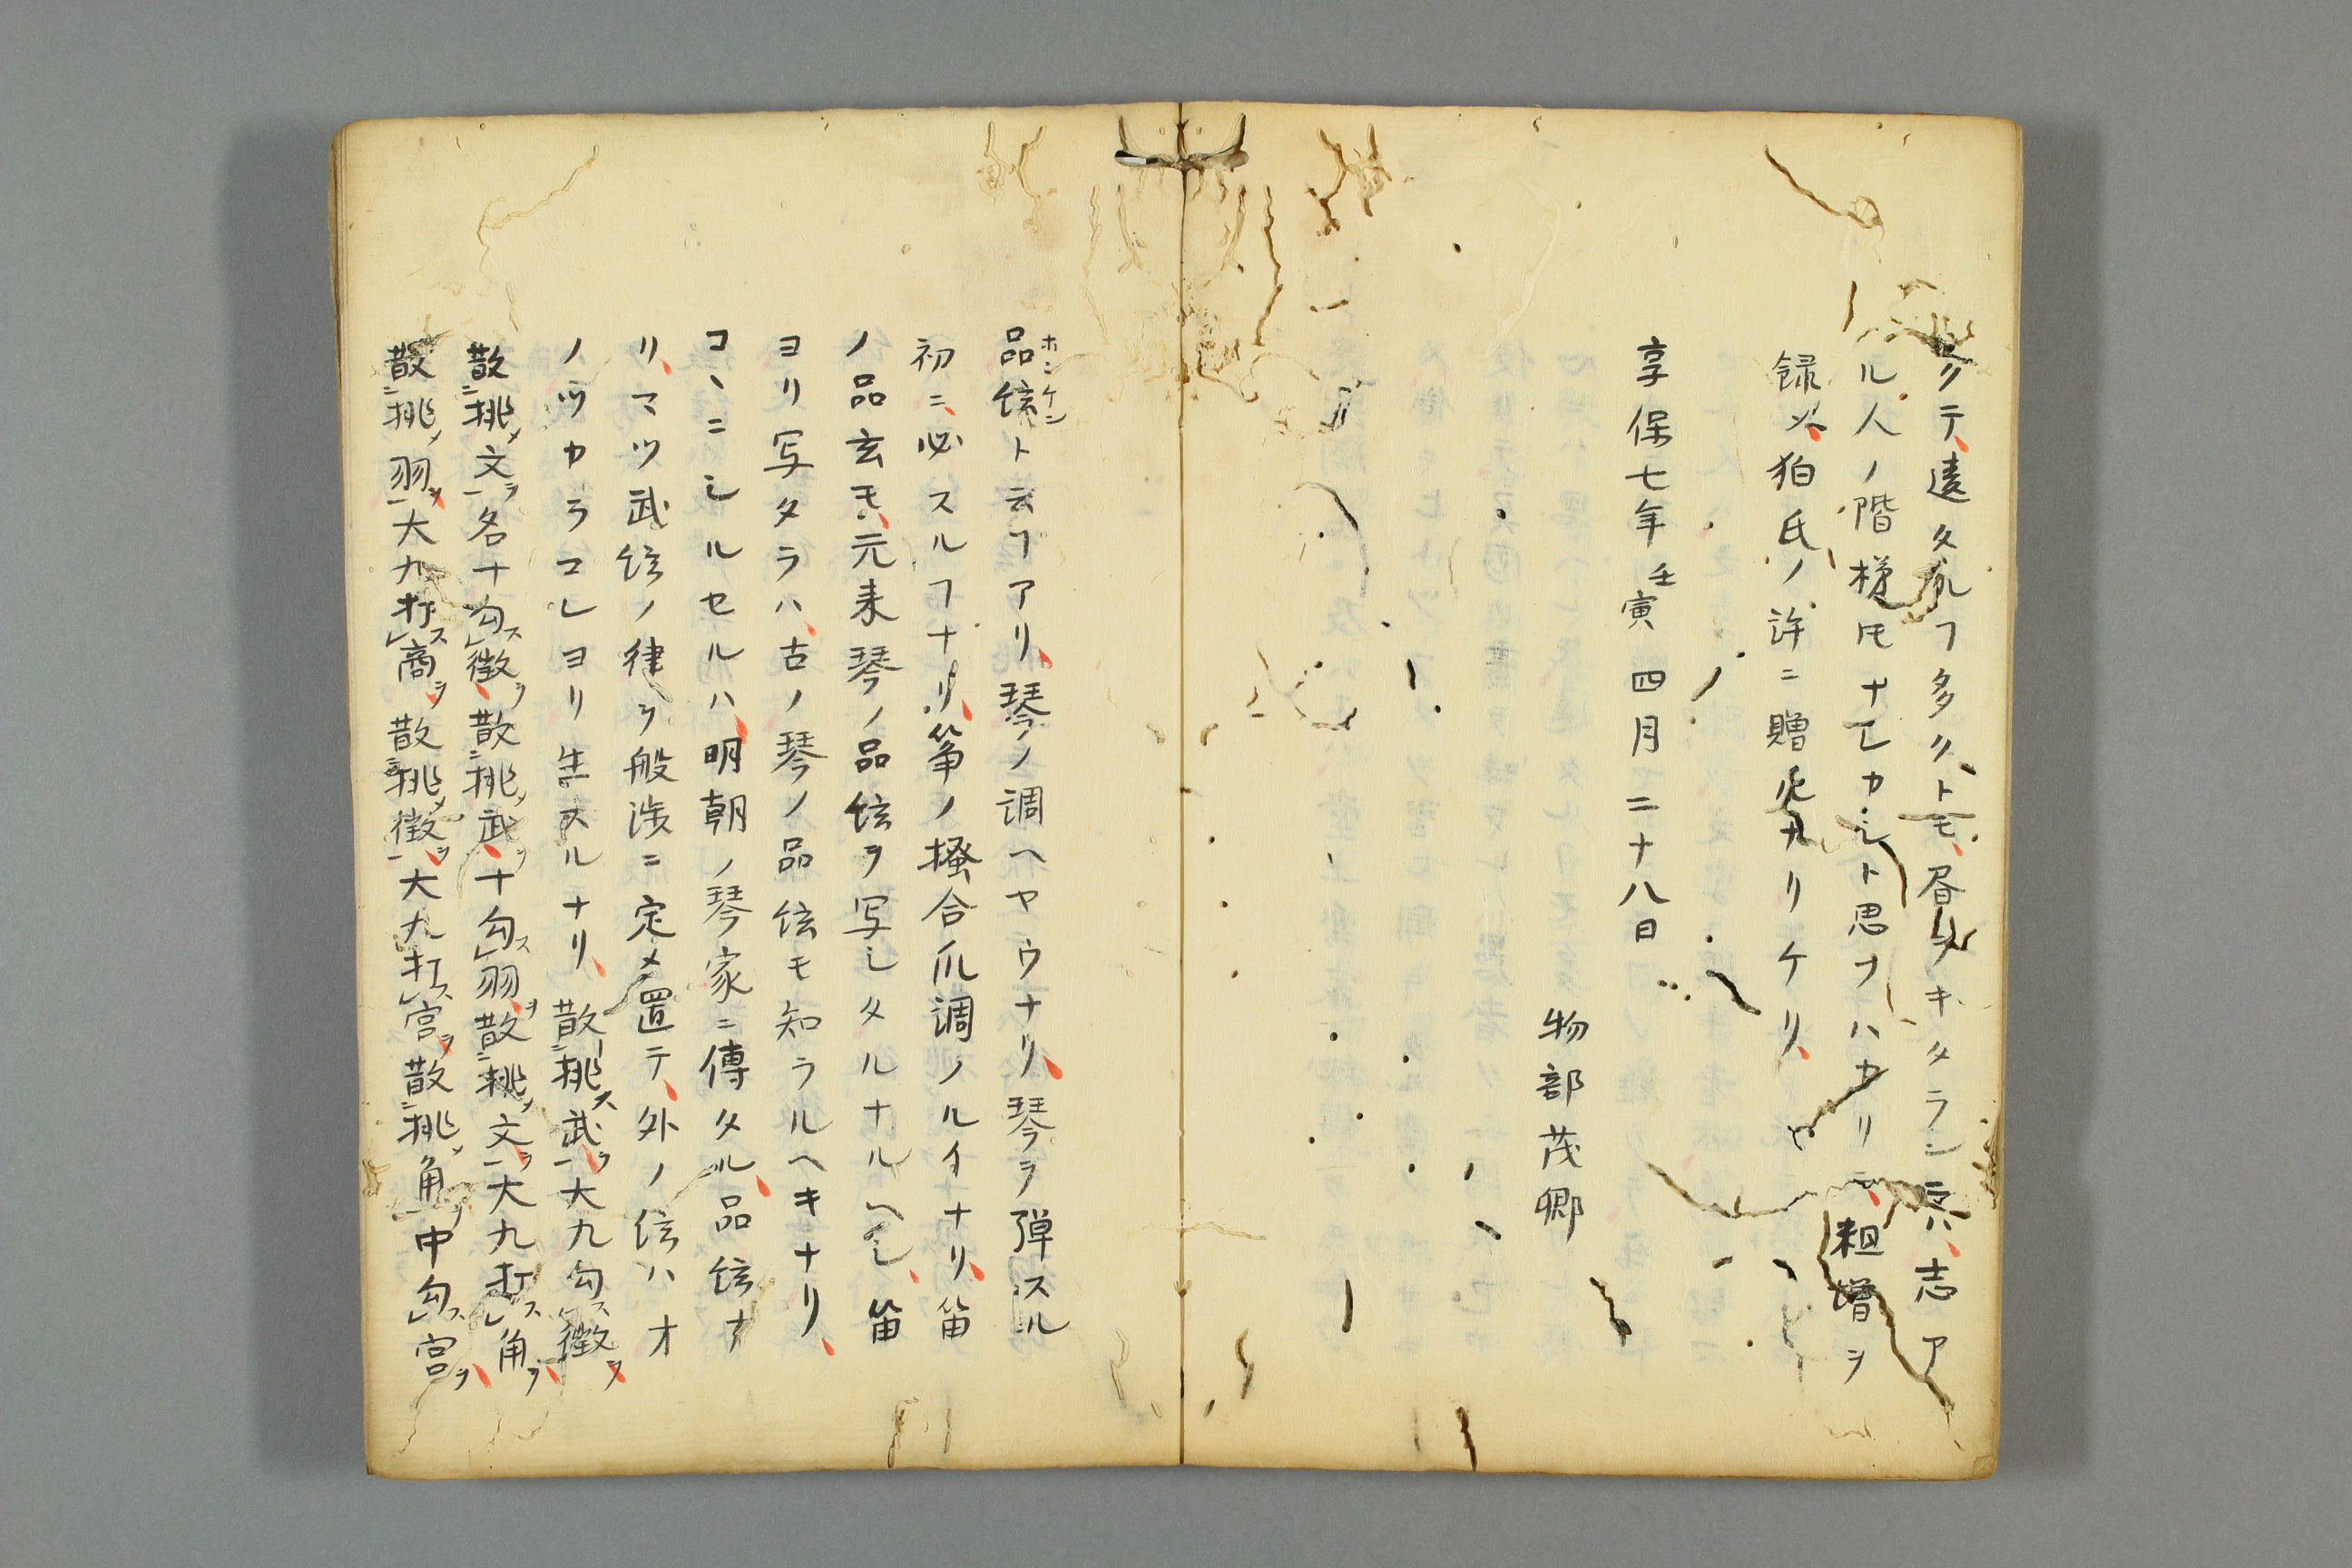 クテ、遠タルヿ多ク、トモ、昼夕キタラン意ハ、志ア
ル人ノ階梯ドモナレカシト思フハカリニ、粗増ヲ
録〆、狛氏ノ許ニ贈ルナリケリ、
享保七年壬寅四月二十八日
物部茂卿
品絃ト云ヿアリ、琴ノ調ヘヤウナリ、琴ヲ弾スル
ホンケン
初ニ、必スルヿナリ、箏ノ掻合爪調ノルイナリ、笛
ノ品玄モ、元来琴ノ品絃ヲ写シタルナルヘシ、笛
ヨリ写タラハ、古ノ琴ノ品絃モ知ラルヘキナリ、
コヽニシルセルハ、明朝ノ琴家ニ傳タル、品絃ナ
リ、マツ武絃ノ律ヲ般渉ニ定メ置テ、外ノ絃ハオ
ノツカラコレヨリ生スルナリ、散挑ス武ヲ一大九勾ス徴ヲ、
散ニ挑メ文ヲ一名十勾ス徴ヲ、散ニ挑メ武ヲ、十勾ス羽ヲ、散ニ挑メ文ヲ一大九打ス角ヲ、
散ニ挑メ羽ヲ一大九打ス商ヲ、散ニ挑メ徴ヲ一大九打ス宮ヲ、散ニ挑メ角ヲ中勾ス宮ヲ、